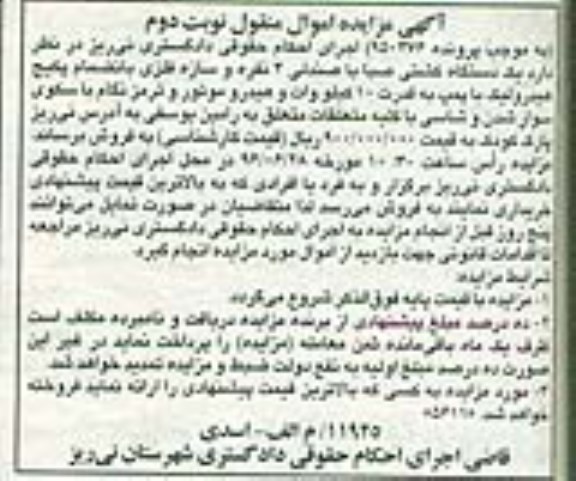 آگهی مزایده اموال منقول نوبت دوم
(به موجب پرونده ۹۵۰۳۷۶) اجرای احکام حقوقی دادگستری نی‌ریز در نظر
دارد یک دستگاه کشتی صبا با صندلی ۳ نفره و سازه فلزی بانضمام پکیج
هیدرولیک با پمپ به قدرت ۱۰ کیلو وات و هیدرو موتور و ترمز نگام با سکوی
سوار شدن و شاسی با کلیه متعلقات متعلق به رامین یوسفی به آدرس نی‌ریز
پارک کودک به قیمت ۹۰۰/۰۰۰/۰۰۰ ریال (قیمت کارشناسی) به فروش برساند.
مزایده رأس ساعت ۱۰:۳۰ مورخه ۹۶/۰۶/۲۸ در محل اجرای احکام حقوقی
دادگستری نی‌ریز برگزار و به فرد یا افرادی که به بالاترین قیمت پیشنهادی
خریداری نمایند به فروش می‌رسد لذا متقاضیان در صورت تمایل می‌توانند
پنج روز قبل از انجام مزایده به اجرای احکام حقوقی دادگستری نی‌ریز مراجعه
تا اقدامات قانونی جهت بازدید از اموال مورد مزایده انجام گیرد.
شرایط مزایده:
۱- مزایده با قیمت پایه فوق‌الذکر شروع می‌گردد.
۲- ده درصد مبلغ پیشنهادی از برنده مزایده دریافت و نامبرده مکلف است
ظرف یک ماه باقی‌مانده ثمن معامله (مزایده) را پرداخت نماید در غیر این
صورت ده درصد مبلغ اولیه به نفع دولت ضبط و مزایده تمدید خواهد شد.
۳- مورد مزایده به کسی که بالاترین قیمت پیشنهادی را ارائه نماید فروخته
خواهد شد.
۱۱۹۲۵/م الف- اسدی
قاضی اجرای احکام حقوقی دادگستری شهرستان نی‌ریز